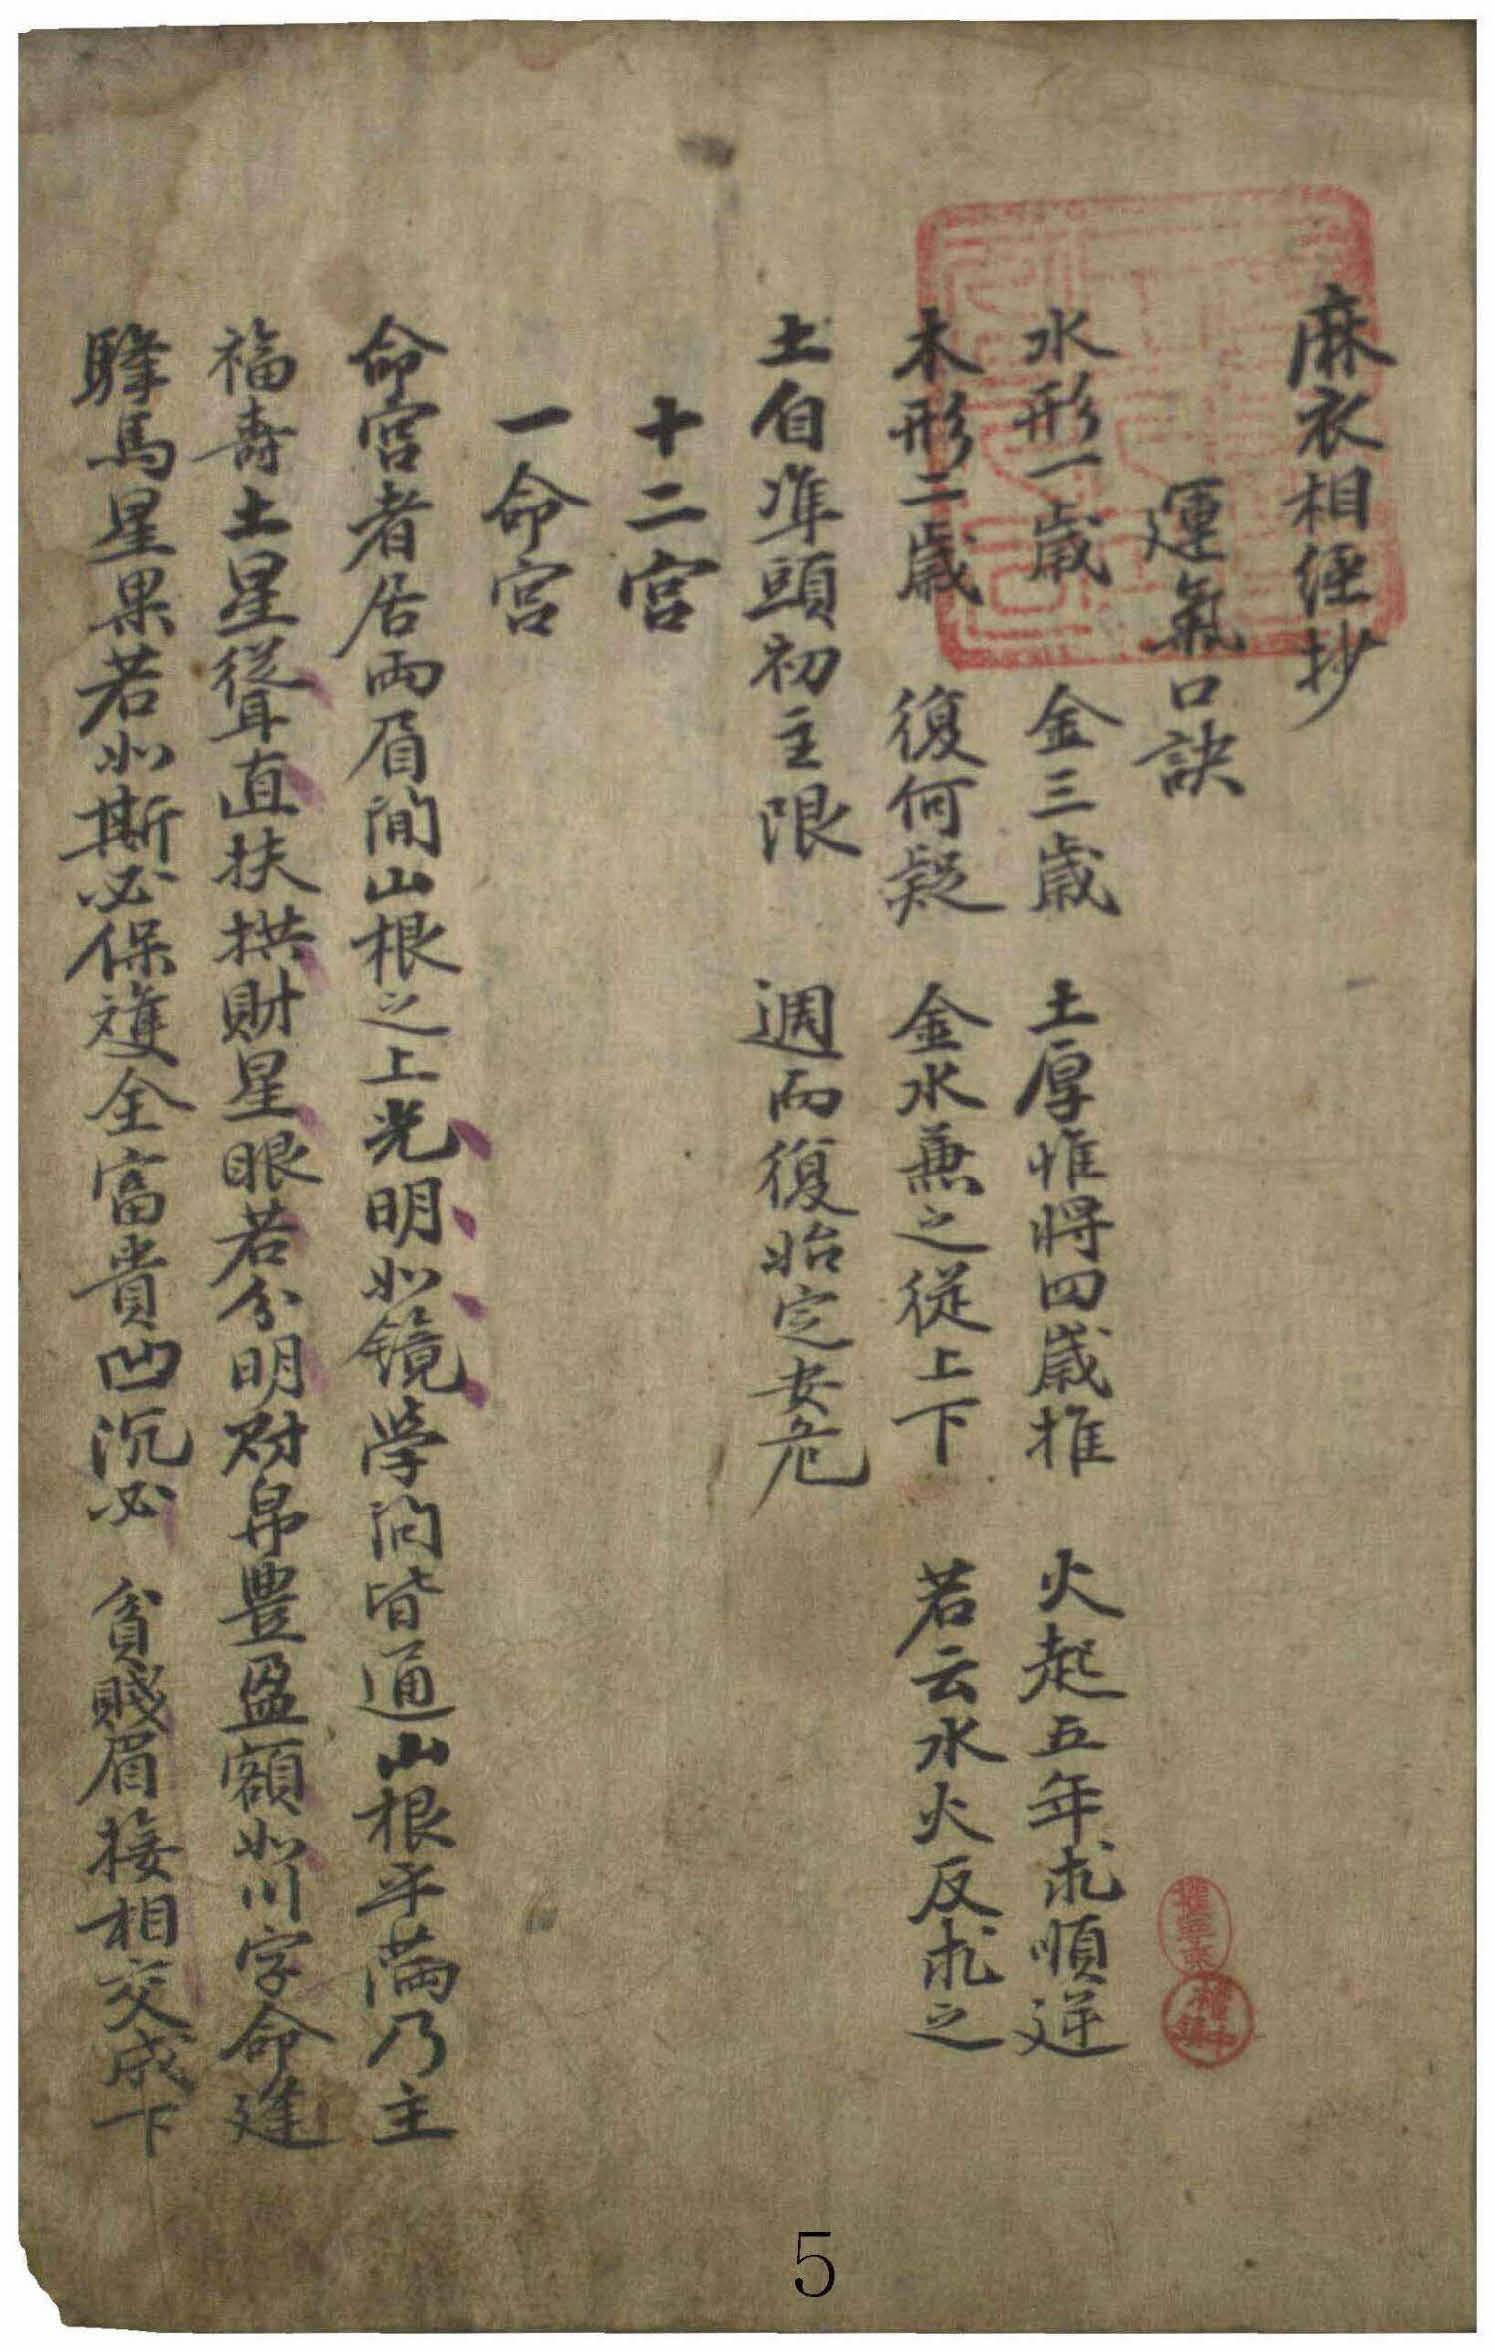 麻衣相經抄
運氣口訣
水形一歲 金三歲 土厚惟將四歲推 火起五年求順逆
木形二歲 復何疑 金水兼之從上下 若云水火反求之
土自準頭初主限 週而復始定安危
十二宮
一命宮
命宮者居兩眉間山根之上光明如鏡學問皆通山根平滿乃主
福壽土星聳直扶拱財星眼若分明財帛豊盈額如川字命逢
驛馬星果若如斯必保雙全富貴凹沉必 貧賤眉接相交成下
5